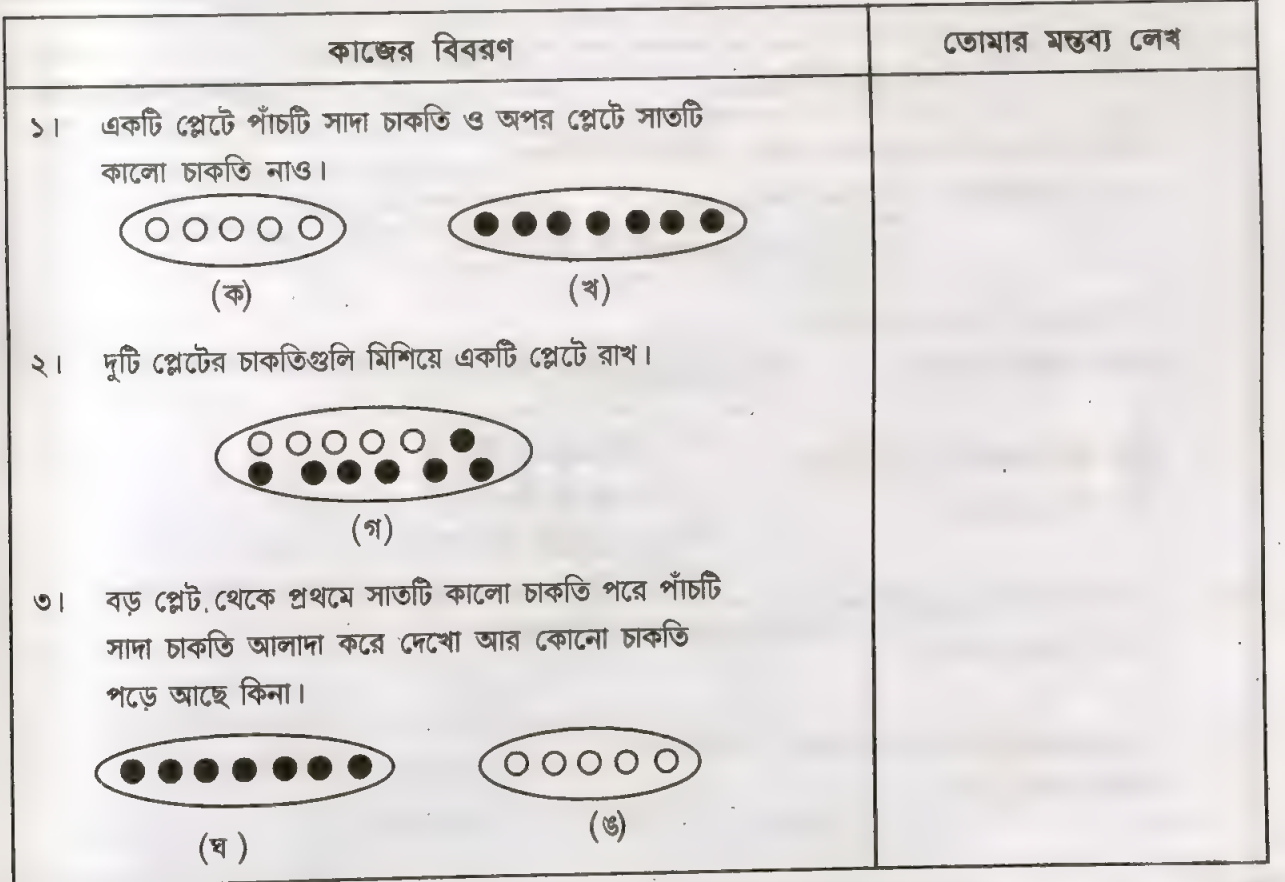 কাজের বিবরণ
তোমার মন্তব্য লেখ
১। একটি প্লেটে পাঁচটি সাদা চাকতি ও অপর প্লেটে সাতটি
কালো চাকতি নাও।
(ক)
(খ)
২। দুটি প্লেটের চাকতিগুলি মিশিয়ে একটি প্লেটে রাখ।
(গ)
৩। বড় প্লেট থেকে প্রথমে সাতটি কালো চাকতি পরে পাঁচটি
সাদা চাকতি আলাদা করে দেখো আর কোনো চাকতি
পড়ে আছে কিনা।
(ঘ)
(ঙ)